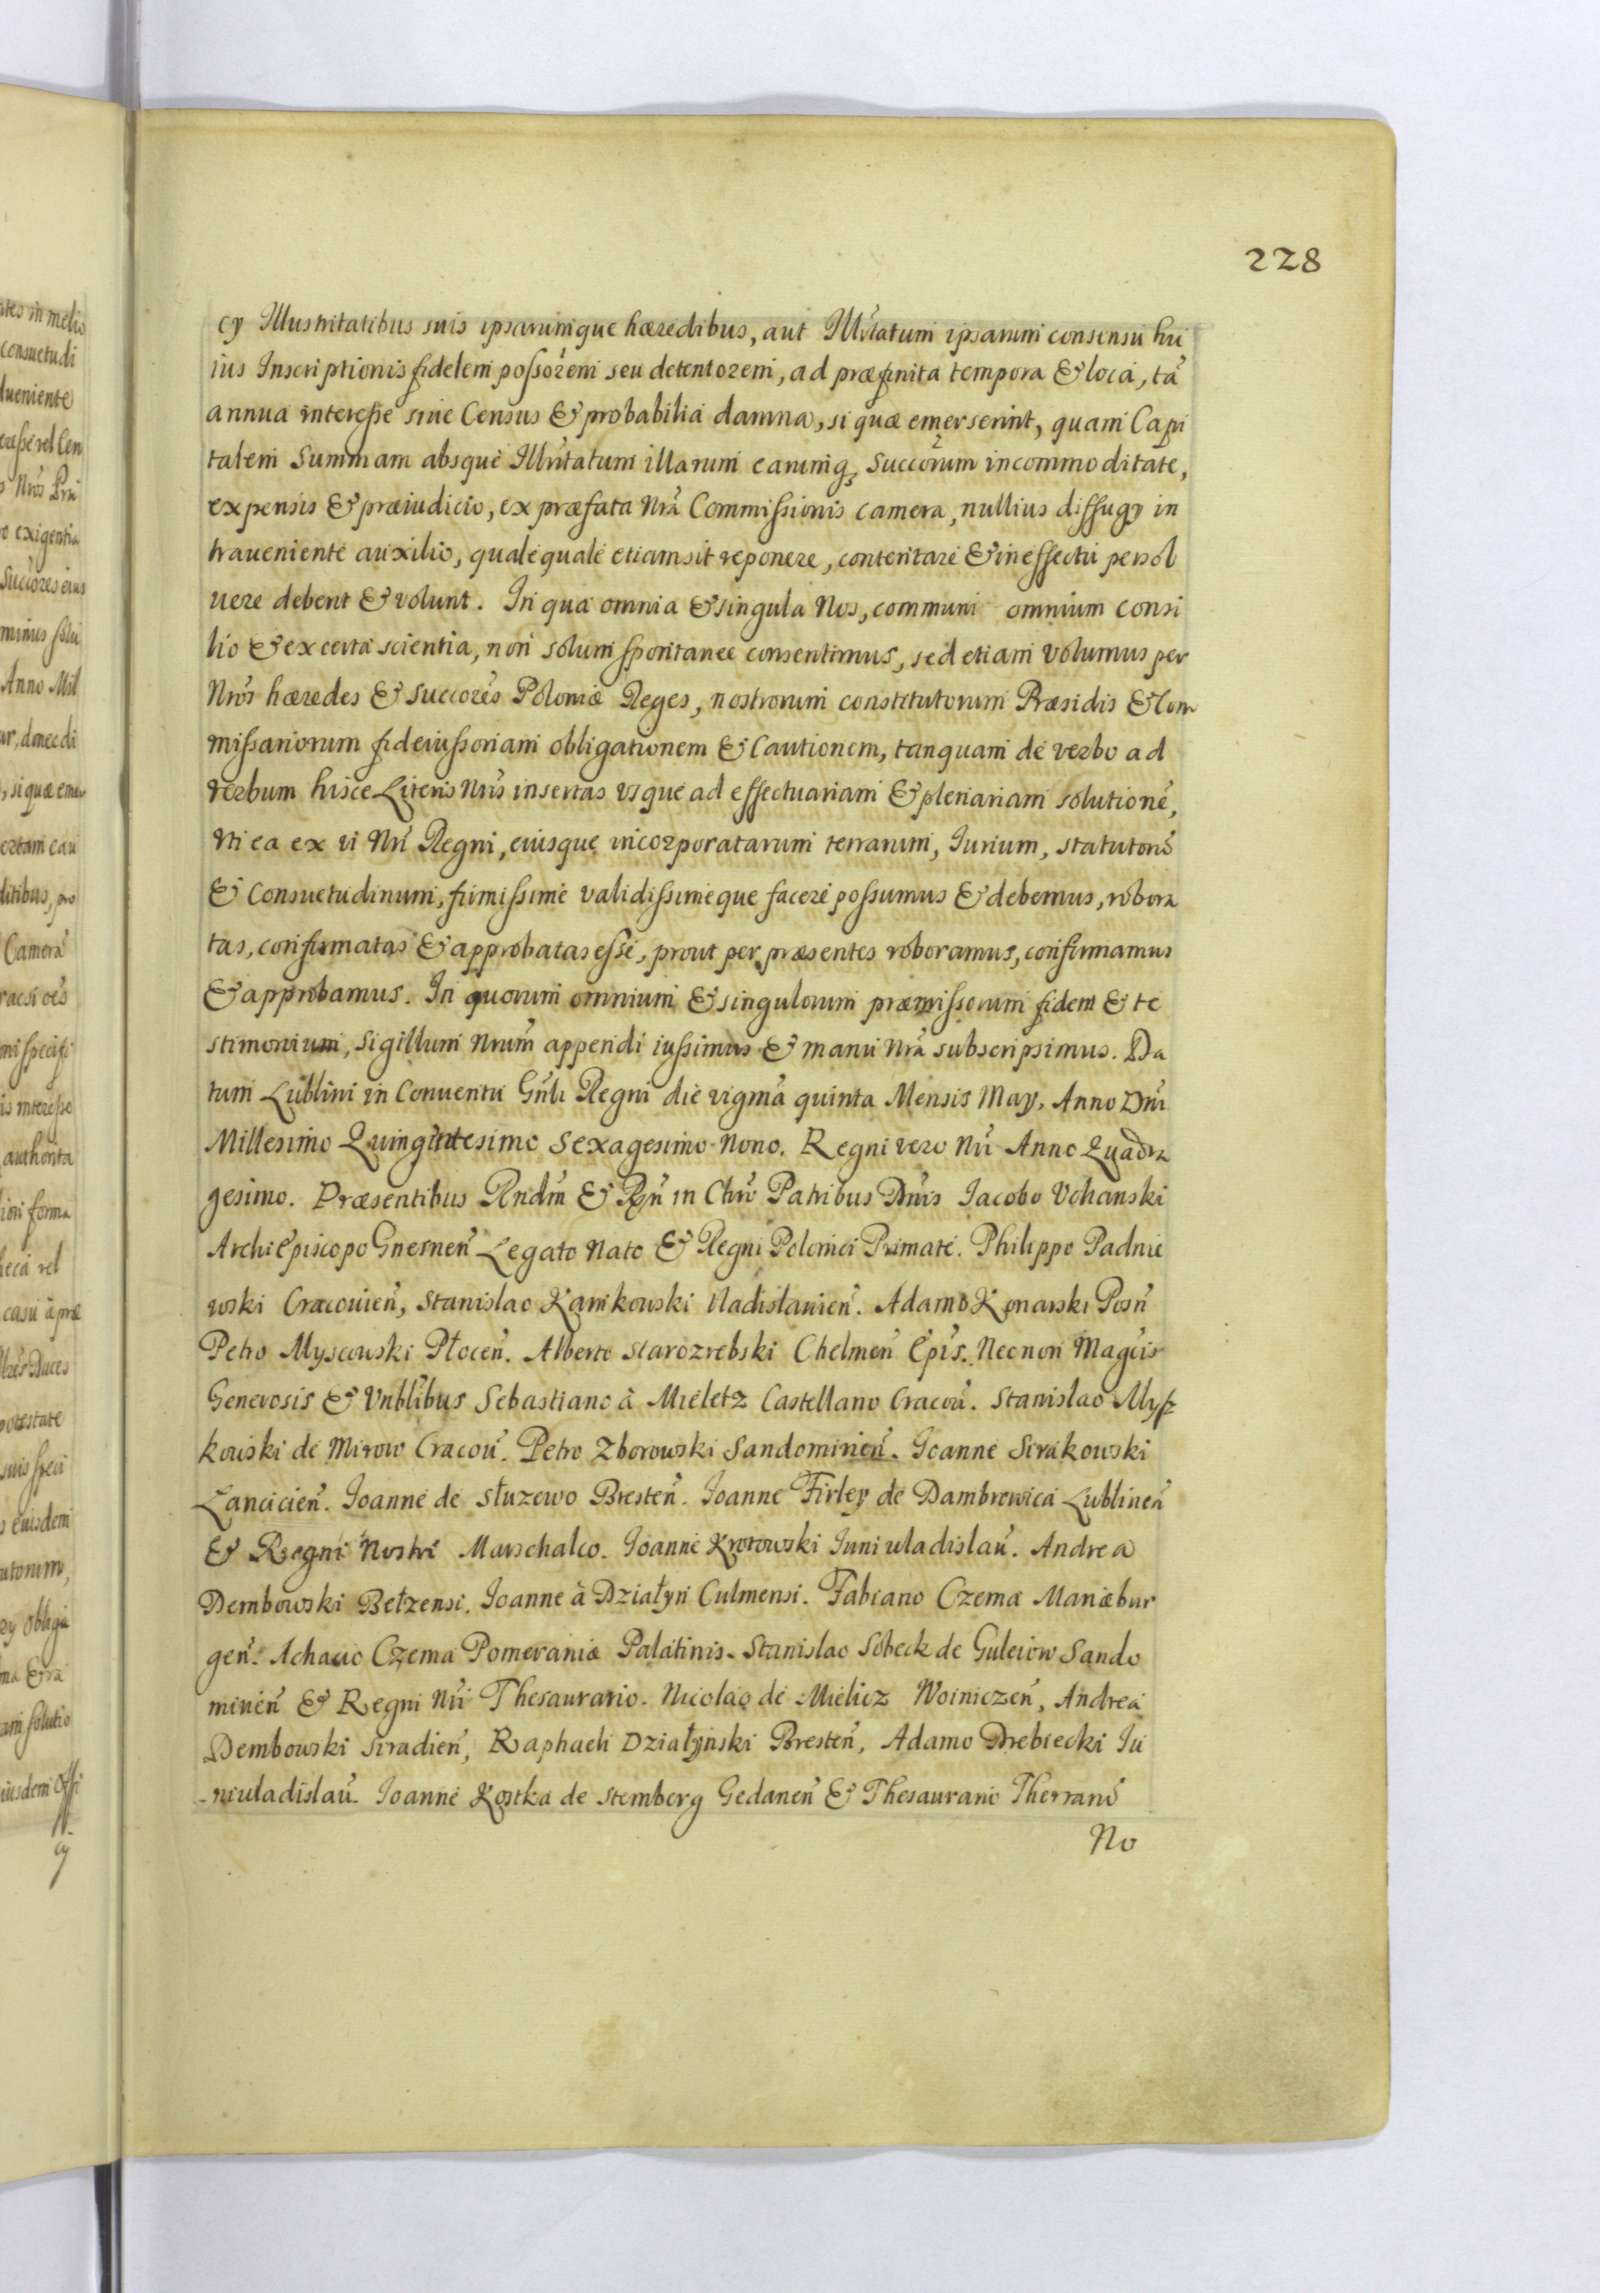 228
cy Illustritatibus suis ipsarumque hæredibus, aut Illŭtatum ipsarum consensu hu
ius Inscriptionis fidelem possõrem seu detentorem, ad præfinita tempora & loca, tã
annua interesse siue Census & probabilia damna, si quæ emerserint, quam Capi
talem Summam absque Illŭtatum illarum earumq; Succorũm incommoditate,
expensis & præiudicio, ex præfata Nrã Commissionis camera, nullius diffugy in
traueniente auxilio, qualequale etiam sit reponere, contentare & in effectu persol
uere debent & volunt. In quæ omnia & singula Nos, communi omnium consi
lio & ex certa scientia, non solum spontanee consentimus, sed etiam volumus per
Nrõs hæredes & Succorẽs Poloniæ Reges, nostrorum constitutorum Præsidis & Com
missariorum fideiussoriam obligationem & Cautionem, tanquam de verbo ad
verbum hisce Literis Nrĩs insertas vsque ad effectuariam & plenariam solutionẽ,
vti ea ex vi Nrĩ Regni, eiusque incorporatarum terrarum, Iurium, statutorũ
& Consuetudinum, firmissime validissimeque facere possumus & debemus, robora
tas, confirmatas & approbatas esse, prout per præsentes roboramus, confirmamus
& approbamus. In quorum omnium & singulorum præmissorum fidem & te
stimonium, Sigillum Nrũm appendi iussimus & manu Nrã subscripsimus. Da
tum Lublini in Conuentu Gñli Regni die vigmã quinta Mensis May, Anno Dñi
Millesimo Quingintesimo Sexagesimo Nono. Regni vero Nrĩ Anno Quadra
gesimo. Præsentibus Rndm̃ & Rñ in Chrõ Patribus Dñis Iacobo Vchanski
ArchiEpiscopo Gnesneñ Legato Nato & Regni Polonici Primate. Philippo Padnie
wski Cracouieñ, Stanislao Karnkowski Vladislauieñ. Adamo Konarski Posñ
Petro Myscowski Płoceñ. Alberto Starozrebski Chelmeñ Epĩs. Necnon Magcĩs
Generosis & Vnblĩbus Sebastiano à Mieletz Castellano Cracoũ. Stanislao Mysz
kowski de Mirow Cracoũ. Petro Zborowski Sandomirieñ. Ioanne Sirakowski
Lancicieñ. Ioanne de Słuzewo Bresteñ. Ioanne Firley de Dambrowica Lublineñ
& Regni Nostri Marschalco. Ioanne Krotowski Iuniuladislaũ. Andrea
Dembowski Bełzensi. Ioanne à Działyn Culmensi. Fabiano Czema Mariæbur
geñ. Achatio Czema Pomeraniæ Palatinis. Stanislao Sobeck de Suleiow Sando
mirieñ & Regni Nrĩ Thesaurario. Nicolao de Mielicz Woiniczeñ, Andrea
Dembowski Siradieñ, Raphaeli Działyński Bresteñ, Adamo Drebiecki Iu
niuladislaũ. Ioanne Kostka de Stemberg Gedaneñ & Thesaurario Therrarũ
No